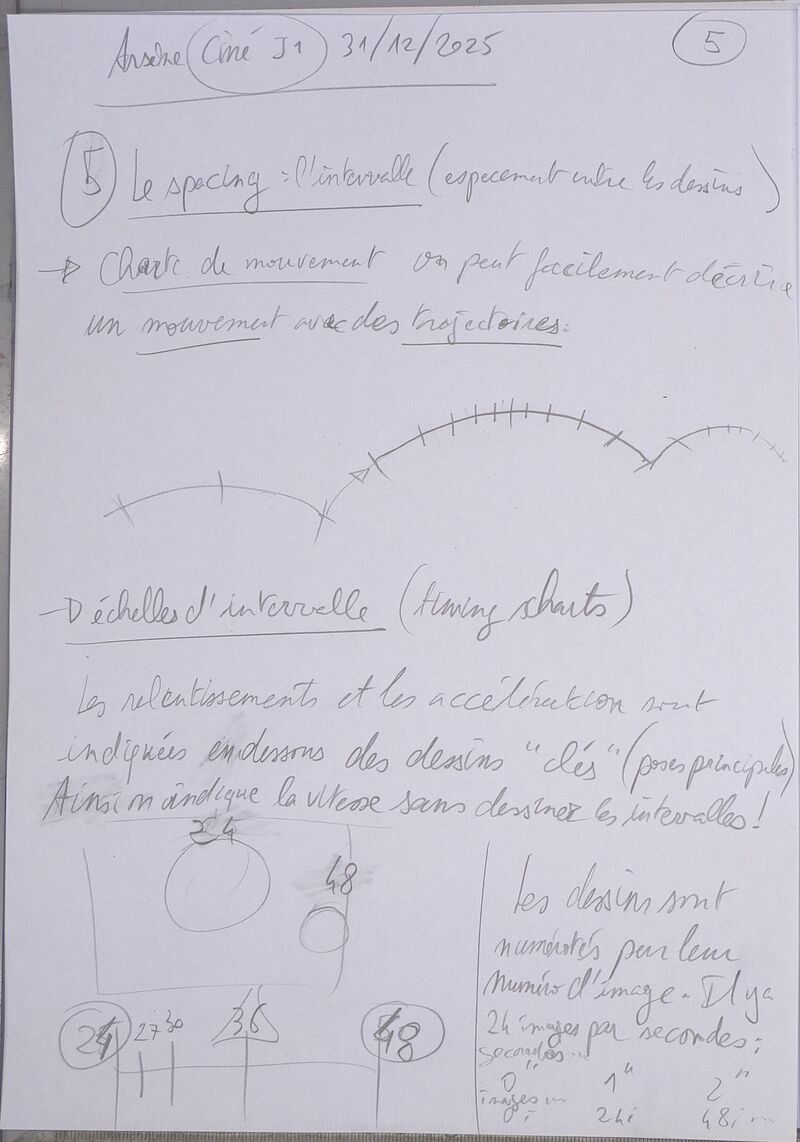 Arsène Ciné J1 31/12/2025
5
5 Le spacing = l'intervalle (espacement entre les dessins)
Charte de mouvement on peut facilement décrire
un mouvement avec des trajectoires.
échelles d'intervalle (timing scharts)
Les relentissements et les accélération sont
indiquées endessous des dessins "clés" (poses principales)
Ainsi on indique la vitesse sans dessiner les intervalles !
24
48
24 27 30 36 48
Les dessins sont
numérotés par leur
numéro d'image. Il y a
24 images par secondes :
secondes
0" 1" 2"
images
0i 24i 48i